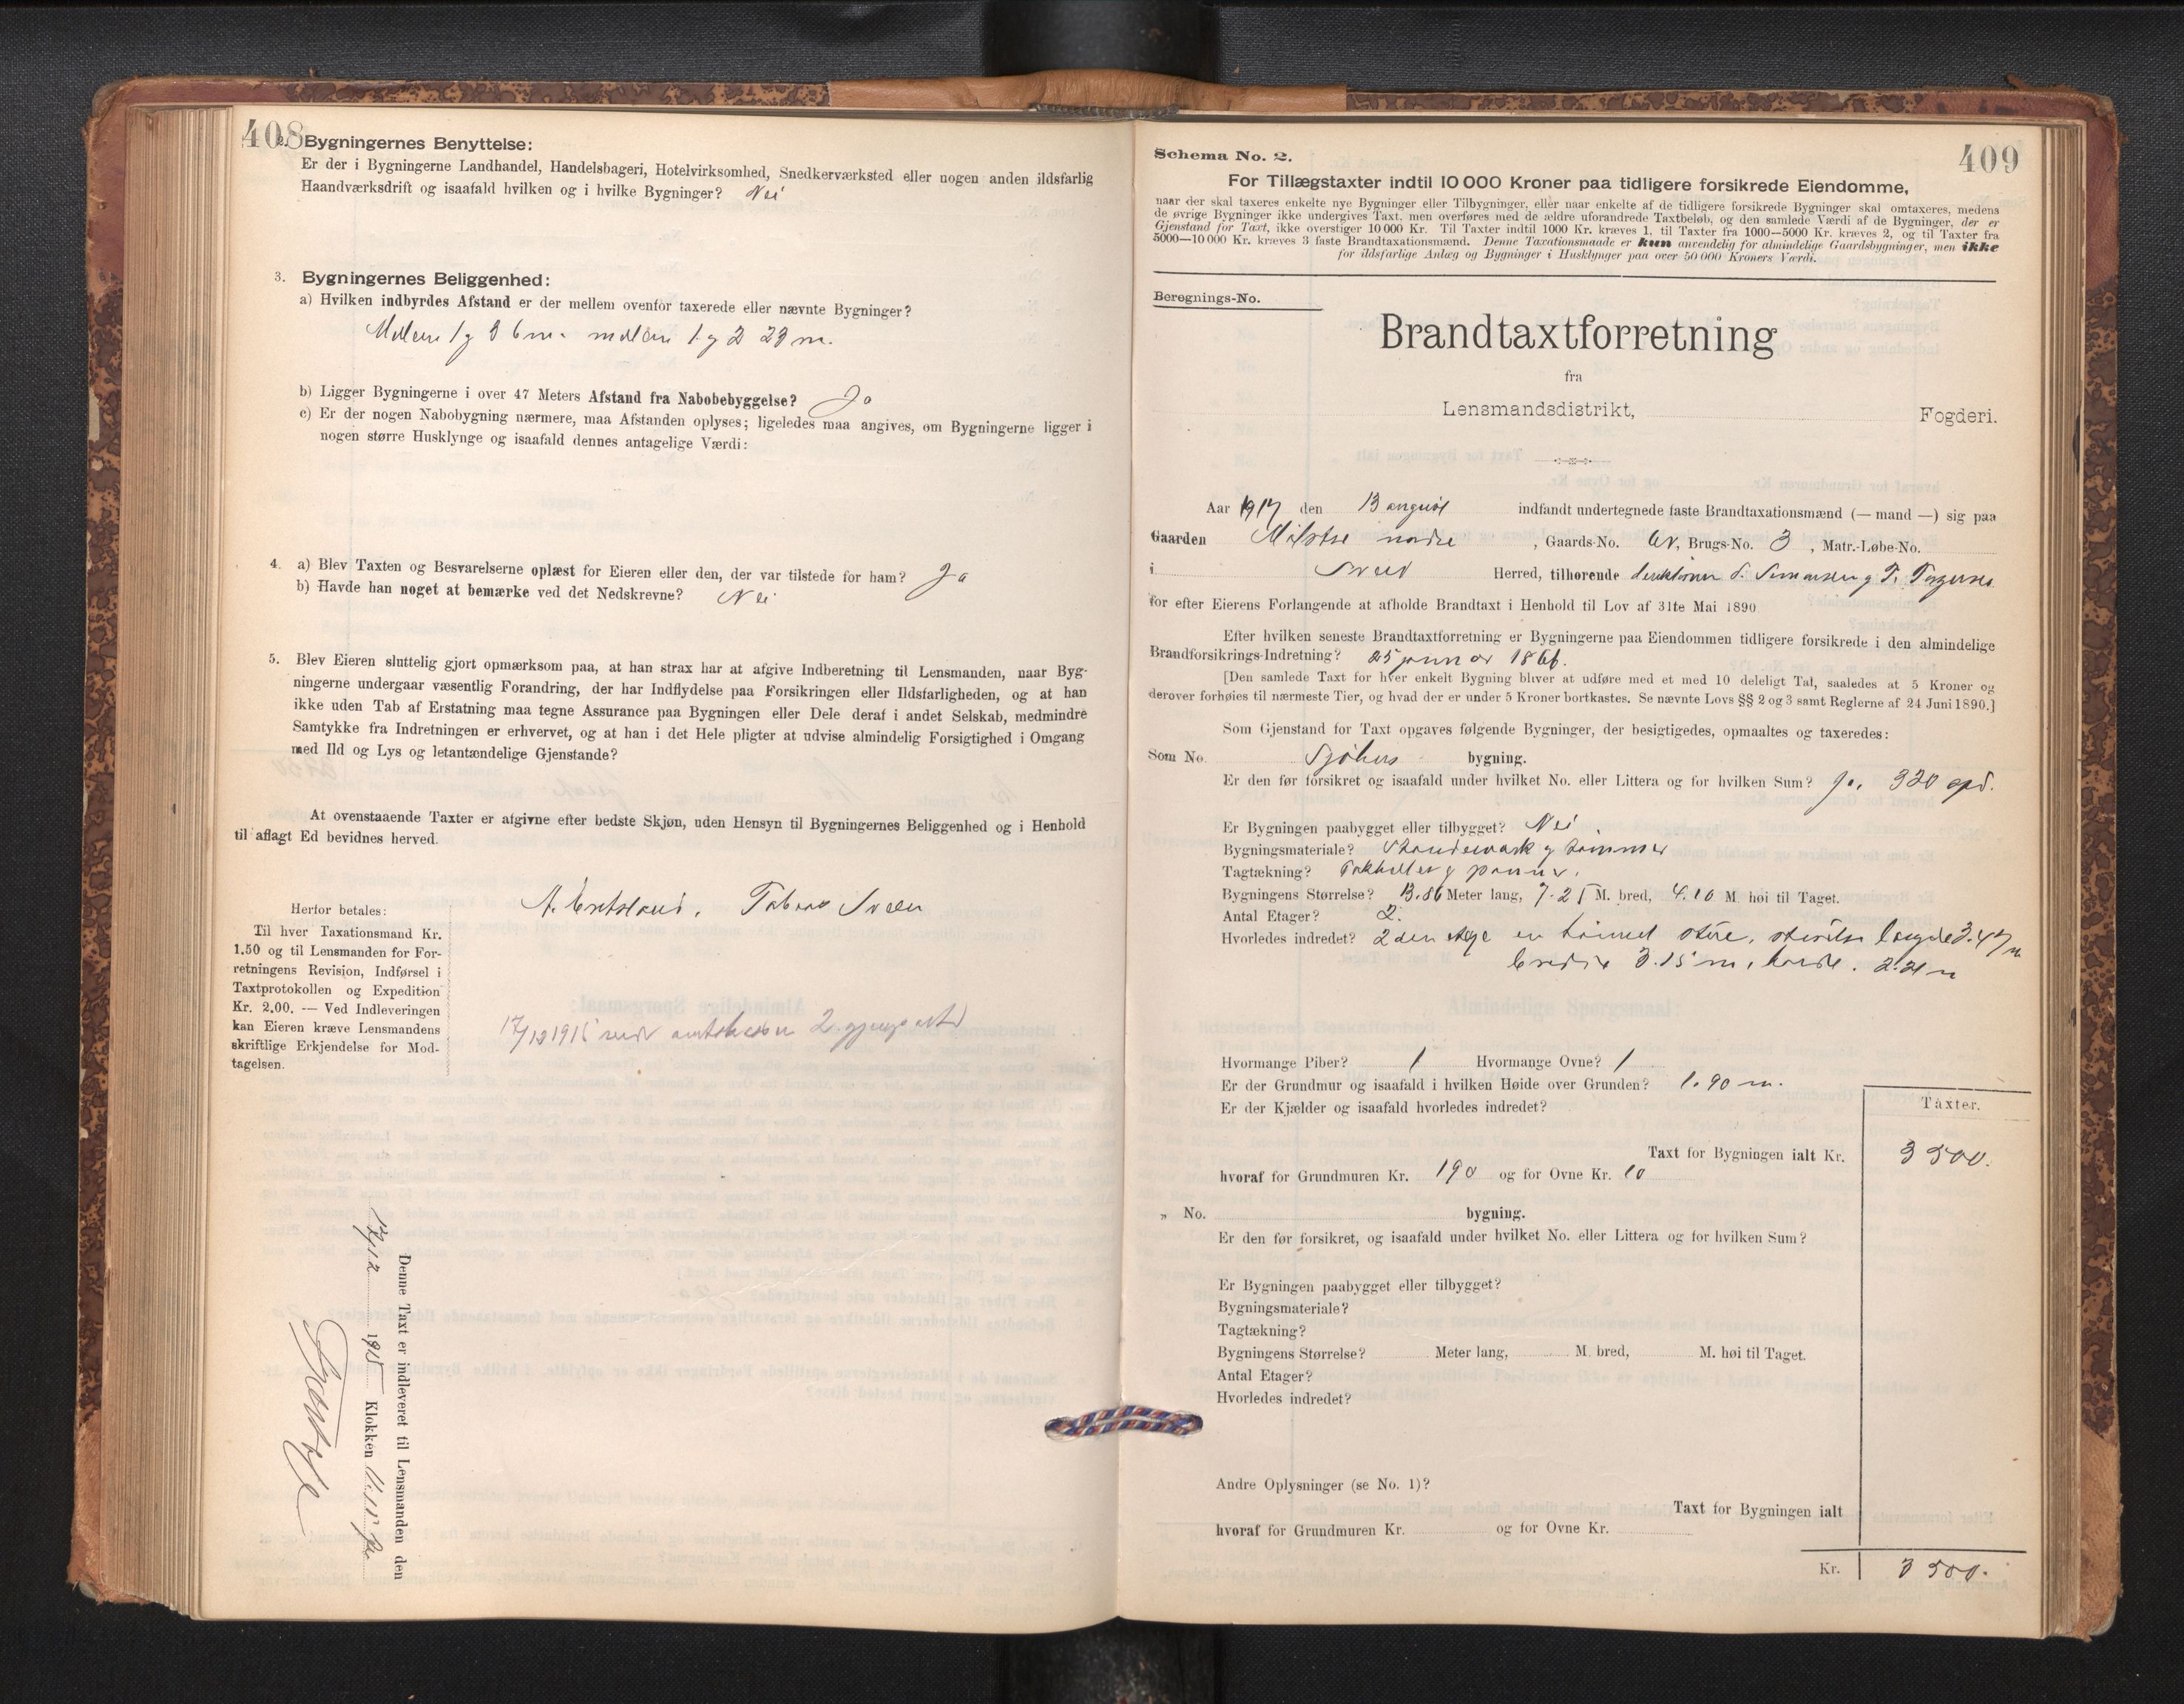 408
2. Bygningernes Benyttelse:
Er der i Bygningerne Landhandel, Handelsbageri, Hotelvirksomhed, Snedkerværksted eller nogen anden ildsfarlig
Haandværksdrift og isaafald hvilken og i hvilke Bygninger? Nei
3. Bygningernes Beliggenhed:
a) Hvilken indbyrdes Afstand er der mellem ovenfor taxerede eller nævnte Bygninger?
Mellem 1 og 3 6 m. mellem 1 og 2 23 m.
b) Ligger Bygningerne i over 47 Meters Afstand fra Nabobebyggelse? Ja
c) Er der nogen Nabobygning nærmere, maa Afstanden oplyses; ligeledes maa angives, om Bygningerne ligger i
nogen større Husklynge og isaafald dennes antagelige Værdi:
4. a) Blev Taxten og Besvarelserne oplæst for Eieren eller den, der var tilstede for ham? Ja
b) Havde han noget at bemærke ved det Nedskrevne? Nei
5. Blev Eieren sluttelig gjort opmærksom paa, at han strax har at afgive Indberetning til Lensmanden, naar Byg-
ningerne undergaar væsentlig Forandring, der har Indflydelse paa Forsikringen eller Ildsfarligheden, og at han
ikke uden Tab af Erstatning maa tegne Assurance paa Bygningen eller Dele deraf i andet Selskab, medmindre
Samtykke fra Indretningen er erhvervet, og at han i det Hele pligter at udvise almindelig Forsigtighed i Omgang
med Ild og Lys og letantændelige Gjenstande?
At ovenstaaende Taxter er afgivne efter bedste Skjøn, uden Hensyn til Bygningernes Beliggenhed og i Henhold
til aflagt Ed bevidnes herved.
Herfor betales:
Til hver Taxationsmand Kr.
1.50 og til Lensmanden for For-
retningens Revision, Indførsel i
Taxtprotokollen og Expedition
Kr. 2.00. — Ved Indleveringen
kan Eieren kræve Lensmandens
skriftlige Erkjendelse for Mod-
tagelsen.
17/12 1915
Denne Taxt er indleveret til Lensmanden den
17/12 1915 Klokken
Schema No. 2.
409
For Tillægstaxter indtil 10 000 Kroner paa tidligere forsikrede Eiendomme,
naar der skal taxeres enkelte nye Bygninger eller Tilbygninger, eller naar enkelte af de tidligere forsikrede Bygninger skal omtaxeres, medens
de øvrige Bygninger ikke undergives Taxt, men overføres med de ældre uforandrede Taxtbeløb, og den samlede Værdi af de Bygninger, der er
Gjenstand for Taxt, ikke overstiger 10 000 Kr. Til Taxter indtil 1000 Kr. kræves 1, til Taxter fra 1000—5000 Kr. kræves 2, og til Taxter fra
5000—10 000 Kr. kræves 3 faste Brandtaxationsmænd. Denne Taxationsmaade er kun anvendelig for almindelige Gaardsbygninger, men ikke
for ildsfarlige Anlæg og Bygninger i Husklynger paa over 50 000 Kroners Værdi.
Beregnings-No.
Brandtaxtforretning
fra
Lensmandsdistrikt, Fogderi.
Aar 1917 den 13 august indfandt undertegnede faste Brandtaxationsmænd (— mand —) sig paa
Gaarden , Gaards-No. , Brugs-No. 3 , Matr.-Løbe-No.
i Herred, tilhørende
for efter Eierens Forlangende at afholde Brandtaxt i Henhold til Lov af 31te Mai 1890
Efter hvilken seneste Brandtaxtforretning er Bygningerne paa Eiendommen tidligere forsikrede i den almindelige
Brandforsikrings-Indretning? 25 januar 1866.
[Den samlede Taxt for hver enkelt Bygning bliver at udføre med et med 10 deleligt Tal, saaledes at 5 Kroner og
derover forhøies til nærmeste Tier, og hvad der er under 5 Kroner bortkastes. Se nævnte Lovs §§ 2 og 3 samt Reglerne af 24 Juni 1890.]
Som Gjenstand for Taxt opgaves følgende Bygninger, der besigtigedes, opmaaltes og taxeredes:
Som No. Sjøhus bygning.
Er den før forsikret og isaafald under hvilket No. eller Littera og for hvilken Sum? Ja, 320 spd.
Er Bygningen paabygget eller tilbygget? Nei
Bygningsmateriale? Standerværk og tømmer
Tagtækning? Takheller og panner.
Bygningens Størrelse? 13.86 Meter lang, 7.25 M. bred, 4.10 M. høi til Taget.
Antal Etager? 2.
Hvorledes indredet? 2den etage en tømret størrelse længde 3.47 m
bredde 3.15 m, høide 2.21 m
Hvormange Piber? 1 Hvormange Ovne? 1
Er der Grundmur og isaafald i hvilken Høide over Grunden? 1.90 m.
Er der Kjælder og isaafald hvorledes indredet?
Taxter.
Taxt for Bygningen ialt Kr. 3500.
hvoraf for Grundmuren Kr. 190 og for Ovne Kr. 10
„ No. bygning.
Er den før forsikret, og isaafald under hvilket No. eller Littera og for hvilken Sum?
Er Bygningen paabygget eller tilbygget?
Bygningsmateriale?
Tagtækning?
Bygningens Størrelse? Meter lang, M. bred, M. høi til Taget.
Antal Etager?
Hvorledes indredet?
Andre Oplysninger (se No. 1)?
Taxt for Bygningen ialt
hvoraf for Grundmuren Kr. og for Ovne Kr.
Kr. 3500.